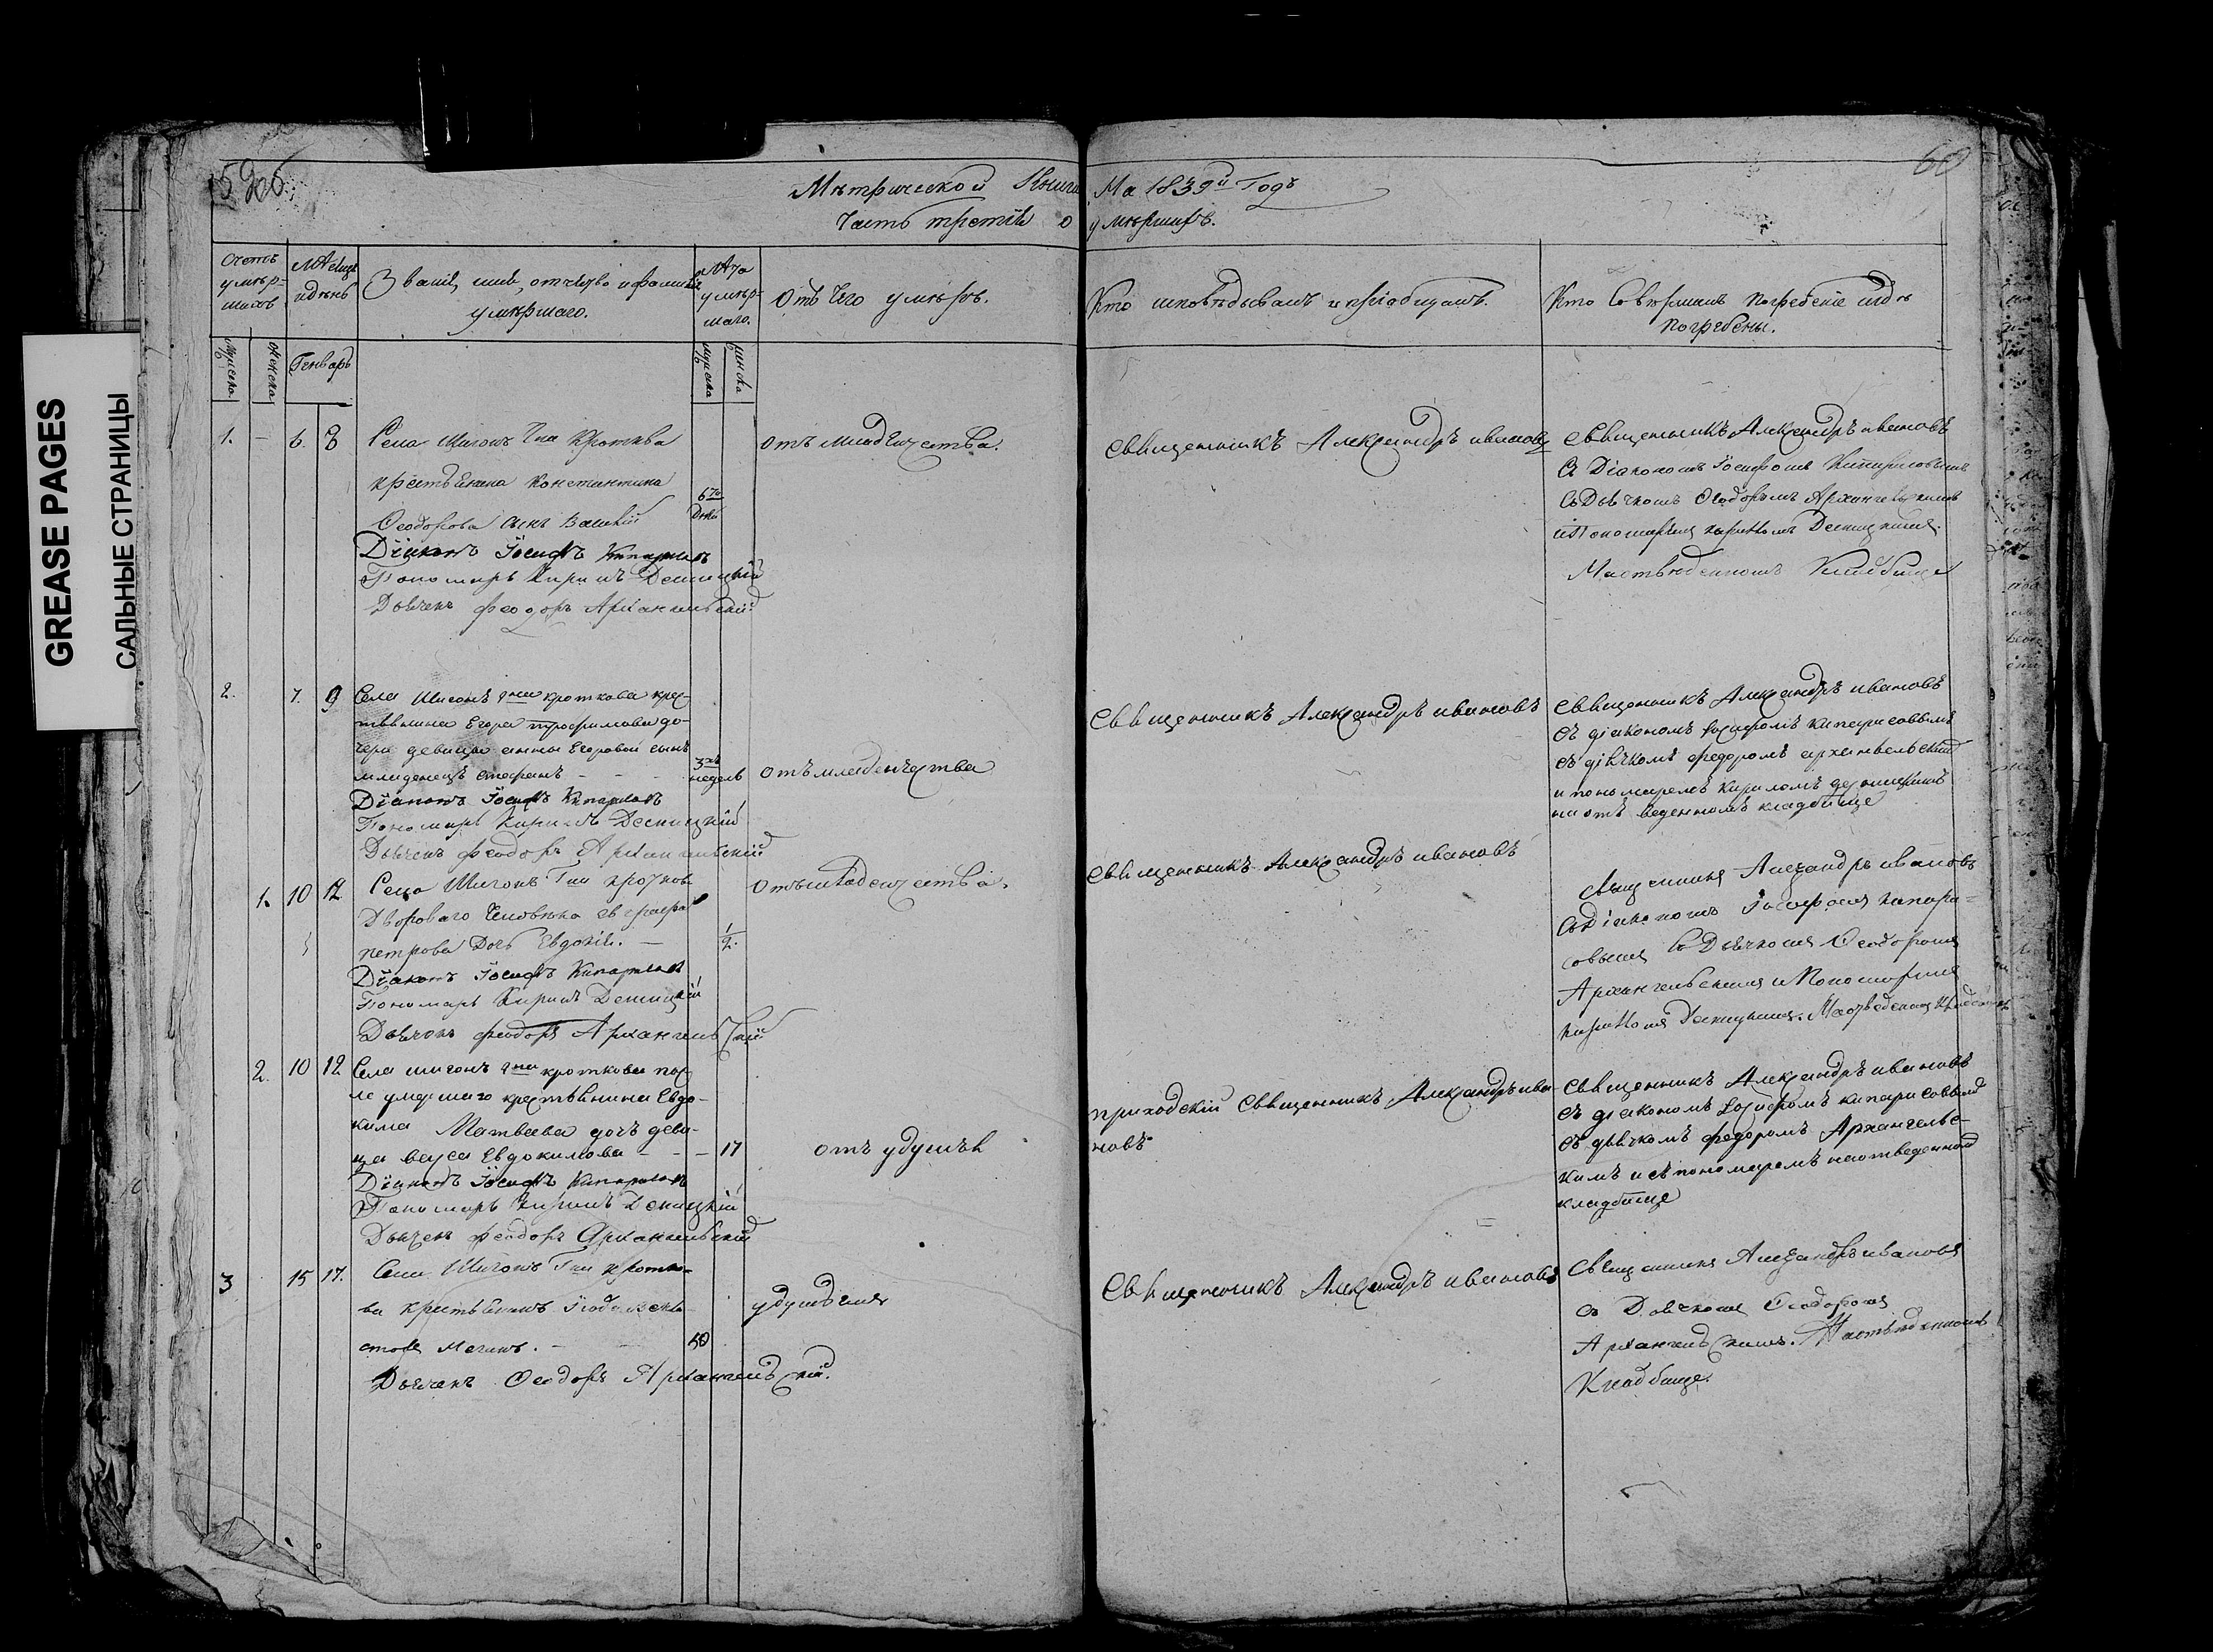 GREASE PAGES
САЛЬНЫЕ СТРАНИЦЫ
60
Метрической Книги На 1839й Годъ
Часть третія о умершихъ.
Счетъ умер-шихъ
Мѣсяцъ и день
Званіе, имя, отчество и фамилія умершаго.
Лѣта умер-шаго.
Отъ чего умеръ.
Кто исповѣдывалъ и пріобщалъ.
Кто Совершилъ погребеніе и гдѣ погребены.
мужеска
женска
Генварь
мужеска
женска
1. – 6. 8
Села Шигонъ Гна Кроткова
крестьянина Константина
Ѳеодорова сынъ Василій
6ти дней
Діаконъ Іосифъ Кипарисовъ
Пономарь Кирилъ Десницкій
Дьячекъ Феодоръ Архангельскій
отъ младенчества.
Священникъ Александръ ивановъ
Священникъ Александръ ивановъ
съ Діакономъ Іосифомъ Кипарисовымъ
съ Дьячкомъ Ѳеодоромъ Архангельскимъ
и Пономаремъ Кириломъ Десницкимъ.
На отведенномъ Кладбище
2. 7. 9
Села Шигонъ Гна кроткова крес-
тьянина Егора трофимова до-
чери девицы анны Егоровой сынъ
младенецъ стефанъ - - -
3хъ недель
Діаконъ Іосифъ Кипарисовъ
Пономарь Кирилъ Десницкій
Дьячекъ Феодоръ Архангельскій
отъ младенчества
Священникъ Александръ ивановъ
Священникъ Александръ ивановъ
съ діакономъ Іосифомъ кипарисовымъ
съ дьячкомъ федоромъ архангельскимъ
и пономаремъ Кириломъ десницкимъ
на отведенномъ кладбище
1. 10 12
Села Шигонъ Гна Кротков
Двороваго Человека евграфа
петрова Дочь Евдокія. –
1/2.
Діаконъ Іосифъ Кипарисовъ
Пономарь Кирилъ Десницкій
Дьячекъ феодоръ Архангельскій
отъ младенчества.
Священникъ Александръ ивановъ
Священникъ Александръ ивановъ
съ Діакономъ Іосифомъ кипари-
совымъ съ Дьячкомъ Ѳеодоромъ
Архангельскимъ и Пономаремъ
Кириломъ Десницкимъ. На отведенномъ Кладбище
2. 10 12
Села шигонъ Гна кроткова пос-
ле умершаго крестьянина Евдо-
кима Матвеева дочь деви-
ца васса Евдокимова - - - 17
Діаконъ Іосифъ Кипарисовъ
Пономарь Кирилъ Десницкій
Дьячекъ феодоръ Архангельскій
отъ удушья
приходскій Священникъ Александръ ива-
новъ
Священникъ Александръ ивановъ
съ діакономъ Іосифомъ кипарисовымъ
съ дьячкомъ федоромъ Архангельс-
кимъ и съ пономаромъ на отведенномъ
кладбище
3 15 17.
Села Шигонъ Гна Кротко-
ва крестьянинъ
50
Дьячекъ Ѳеодоръ Архангельскій.
удушенія
Священникъ Александръ ивановъ
Священникъ Александръ ивановъ
съ Дьячкомъ Ѳеодоромъ
Архангельскимъ. На отведенномъ
Кладбище.